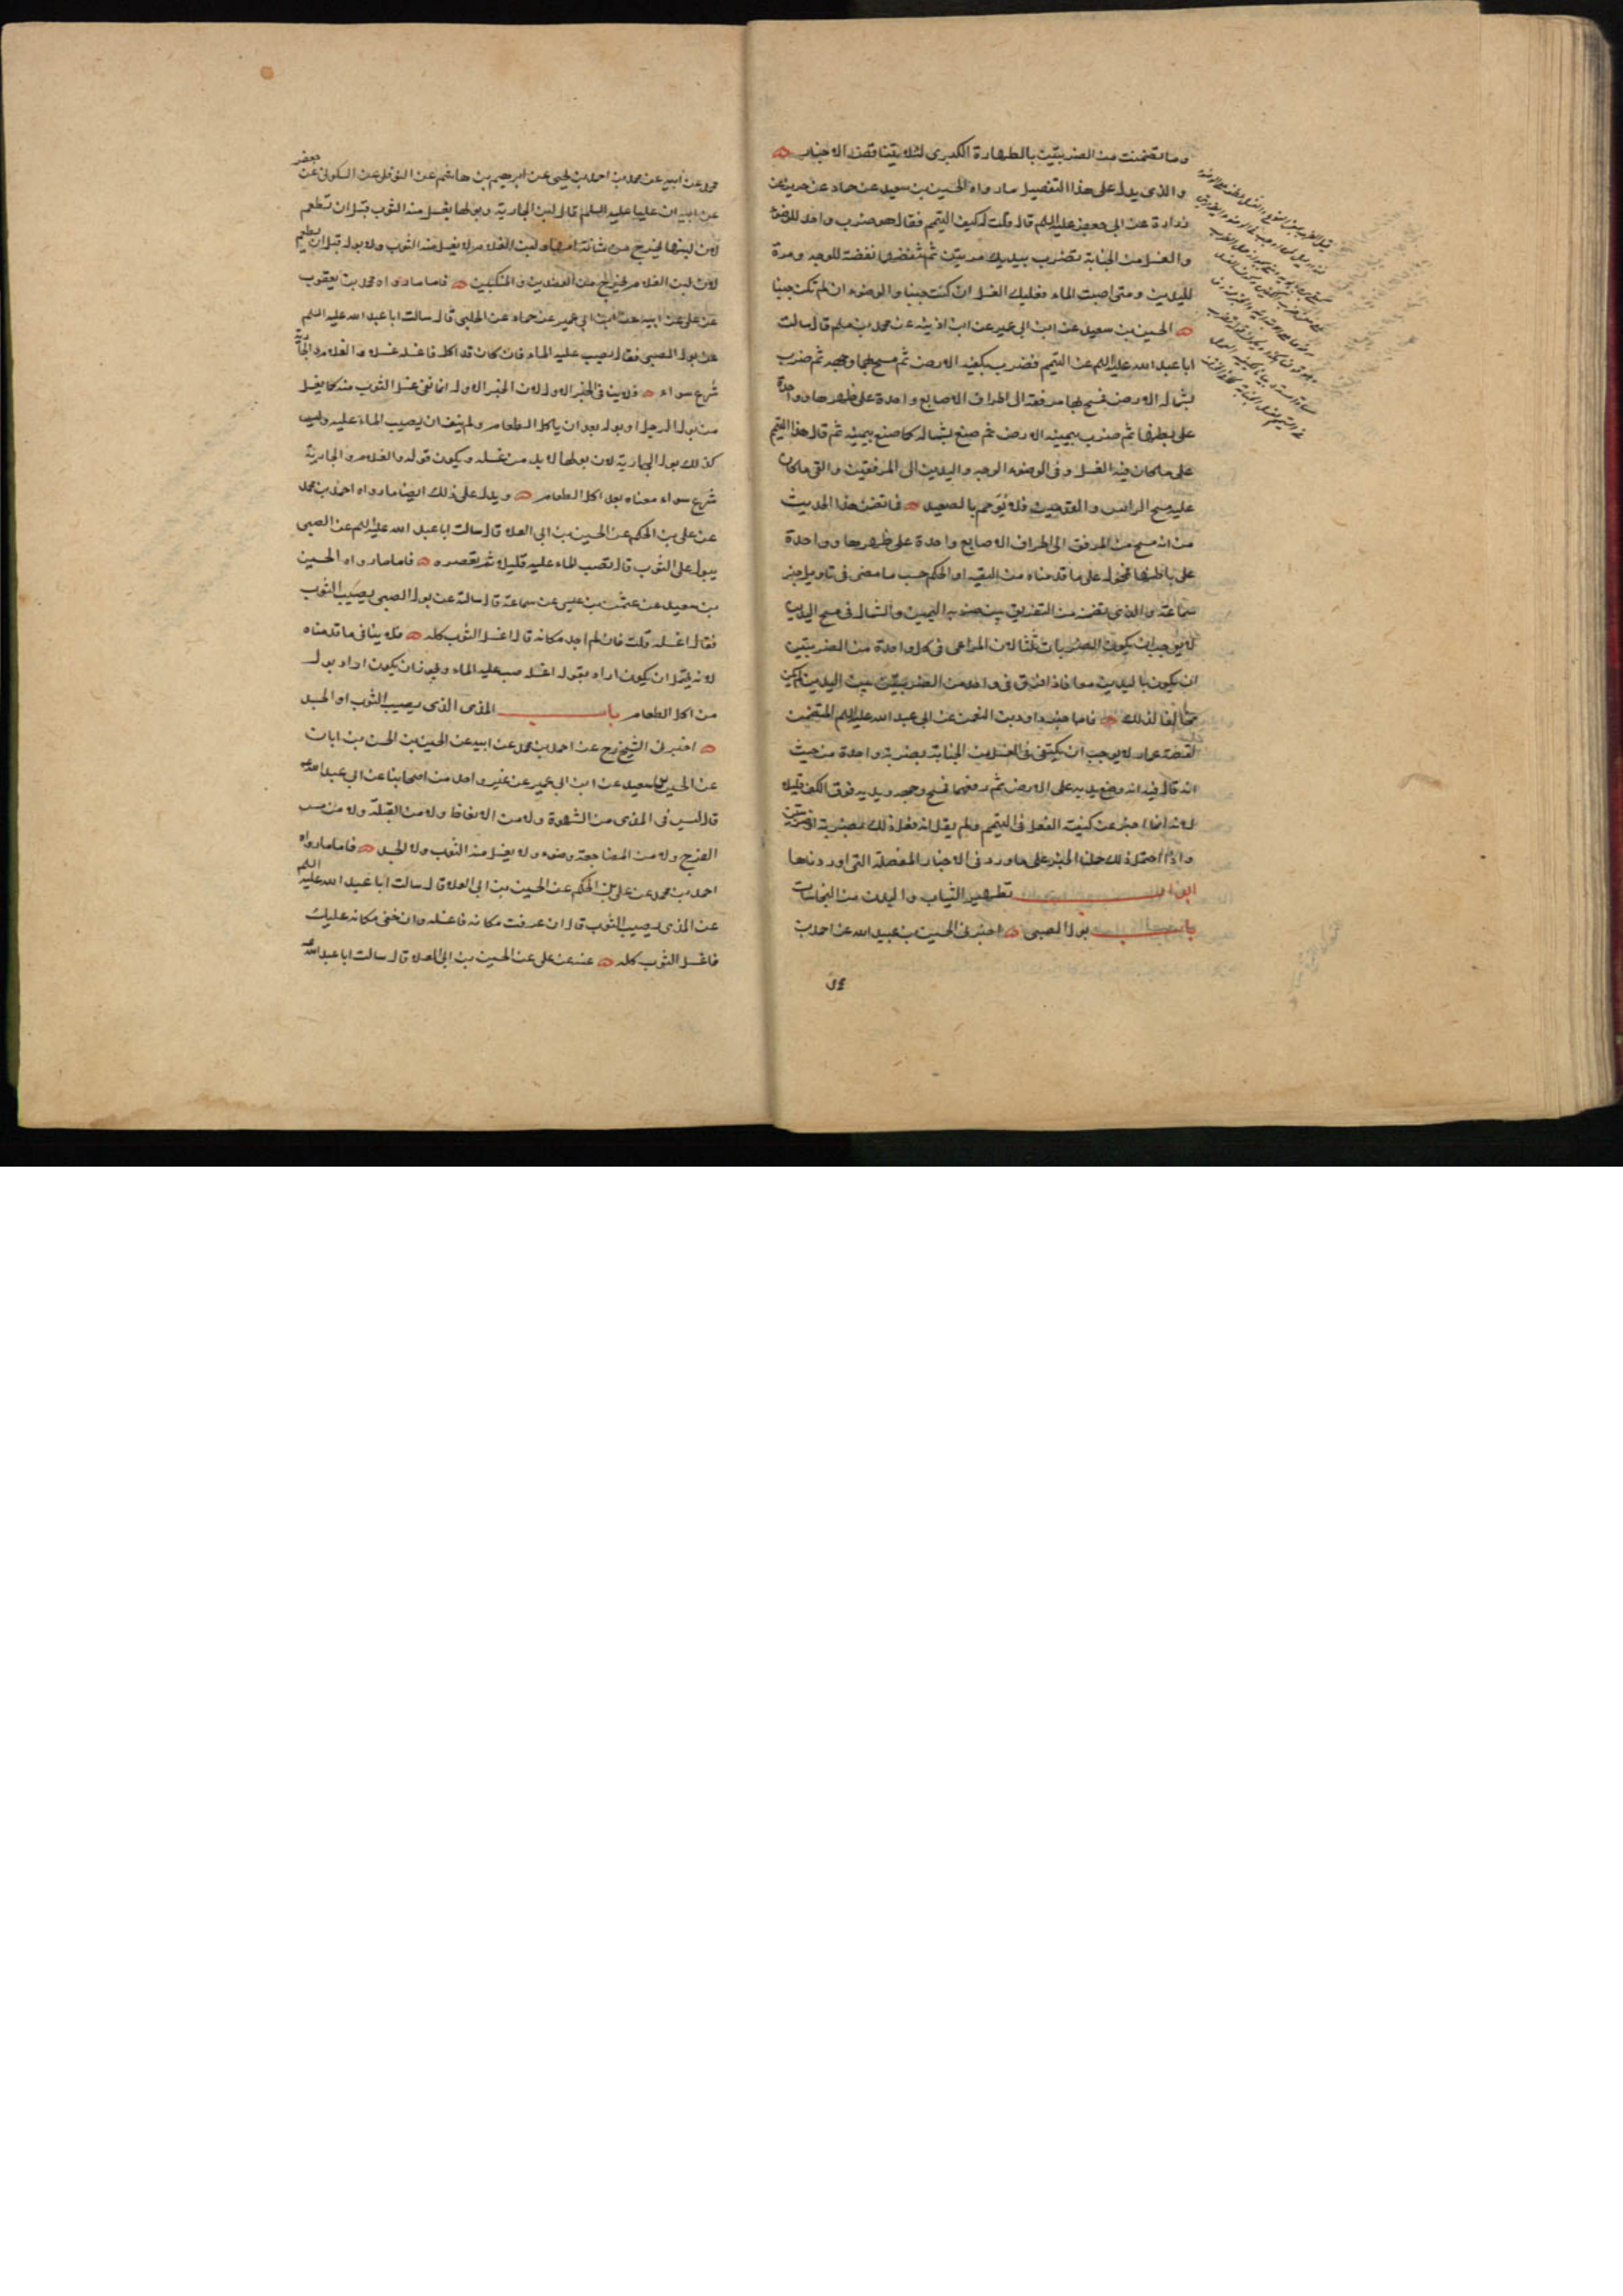 وما تضمنت من الضربتين بالطهارة الكبرى لئلا يتناقض الاخبار
والذي يدل على هذا التفصيل ما رواه الحسين بن سعيد عن حماد عن حريز عن
زرارة عن ابي جعفر عليه السلم قال قلت له كيف التيمم فقال هو ضرب واحد للوضوء
والغسل من الجنابة تضرب بيديك مرتين ثم تنفضهما نفضة للوجه ومرة
لليدين ومتى اصبت الماء فعليك الغسل ان كنت جنبا والوضوء ان لم تكن جنبا
الحسين بن سعيد عن ابن ابي عمير عن ابن اذينة عن محمد بن مسلم قال سالت
ابا عبد الله عليه السلم عن التيمم فضرب بكفيه الارض ثم مسح بهما وجهه ثم ضرب
بشماله الارض فمسح بها مرفقه الى اطراف الاصابع واحدة على ظهرها وواحدة
على بطنها ثم ضرب بيمينه الارض ثم صنع بشماله كما صنع بيمينه ثم قال هذا التيمم
على ما كان فيه الغسل وفي الوضوء الوجه واليدين الى المرفقين والقى ما كان
عليه مسح الراس والقدمين فلا يؤمم بالصعيد فما تضمن هذا الحديث
من انه مسح من المرفق الى اطراف الاصابع واحدة على ظهرها وواحدة
على باطنها محمول على ما قدمناه من التقية او الحكم حسب ما مضى في تاويل خبر
سماعة والذي تضمن من التفريق بين ضربه اليمين والشمال في مسح اليدين
لا يوجب ان يكون الضربات ثلثا لان المراعى في كل واحدة من الضربتين
ان يكون باليدين معا فاذا افترق في واحد من الضربتين بين اليدين لم يكن
مخالفا لذلك فاما خبر داود بن النعمن عن ابي عبد الله عليه السلم المتضمن
لقصة عمار لا يوجب ان يكتفى في الغسل من الجنابة بضربة واحدة من حيث
انه قال فيه انه وضع يديه على الارض ثم رفعهما فمسح وجهه ويديه فوق الكف قليلا
لانه انما اخبر عن كيفية الفعل في التيمم ولم يقل انه فعل ذلك بضربة او ضربتين
واذا احتمل ذلك حملنا الخبر على ما ورد في الاخبار المفصلة التي اوردناها
ابواب تطهير الثياب والبدن من النجاسات
باب بول الصبي اخبرني الحسين بن عبيد الله عن احمد بن
محمد عن ابيه عن محمد بن احمد بن يحيى عن ابرهيم بن هاشم عن النوفلي عن السكوني عن جعفر
عن ابيه ان عليا عليه السلم قال لبن الجارية وبولها يغسل منه الثوب قبل ان تطعم
لان لبنها يخرج من مثانة امها ولبن الغلام لا يغسل منه الثوب ولا بوله قبل ان يطعم
لان لبن الغلام يخرج من العضدين والمنكبين فاما ما رواه محمد بن يعقوب
عن علي عن ابيه عن ابن ابي عمير عن حماد عن الحلبي قال سالت ابا عبد الله عليه السلم
عن بول الصبي فقال يصب عليه الماء فان كان قد اكل فاغسله غسلا والغلام والجارية
شرع سواء فلا ينافي الخبر الاول لان الخبر الاول انما نفى غسل الثوب منه كما يغسل
من بول الرجل او بوله بعد ان ياكل الطعام ولم ينف ان يصب الماء عليه وليس
كذلك بول الجارية لان بولها لا بد من غسله ويكون قوله والغلام والجارية
شرع سواء معناه بعد اكل الطعام ويدل على ذلك ايضا ما رواه احمد بن محمد
عن علي بن الحكم عن الحسين بن ابي العلا قال سالت ابا عبد الله عليه السلم عن الصبي
يبول على الثوب قال تصب الماء عليه قليلا ثم تعصره فاما ما رواه الحسين
بن سعيد عن عثمن بن عيسى عن سماعة قال سالته عن بول الصبي يصيب الثوب
فقال اغسله قلت فان لم اجد مكانه قال اغسل الثوب كله فلا ينافي ما قدمناه
لانه يحتمل ان يكون اراد بقوله اغسله صب عليه الماء ويجوز ان يكون اراد بول
من اكل الطعام باب المذي الذي يصيب الثوب او الجسد
اخبرني الشيخ رح عن احمد بن محمد عن ابيه عن الحسين بن الحسن بن ابان
عن الحسين بن سعيد عن ابن ابي عمير عن غير واحد من اصحابنا عن ابي عبد الله ع
قال ليس في المذي من الشهوة ولا من الانعاظ ولا من القبلة ولا من مس
الفرج ولا من المضاجعة وضوء ولا يغسل منه الثوب ولا الجسد فاما ما رواه
احمد بن محمد عن علي بن الحكم عن الحسين بن ابي العلا قال سالت ابا عبد الله عليه السلم
عن المذي يصيب الثوب قال ان عرفت مكانه فاغسله وان خفي مكانه عليك
فاغسل الثوب كله عنه عن علي عن الحسين بن ابي العلا قال سالت ابا عبد الله ع